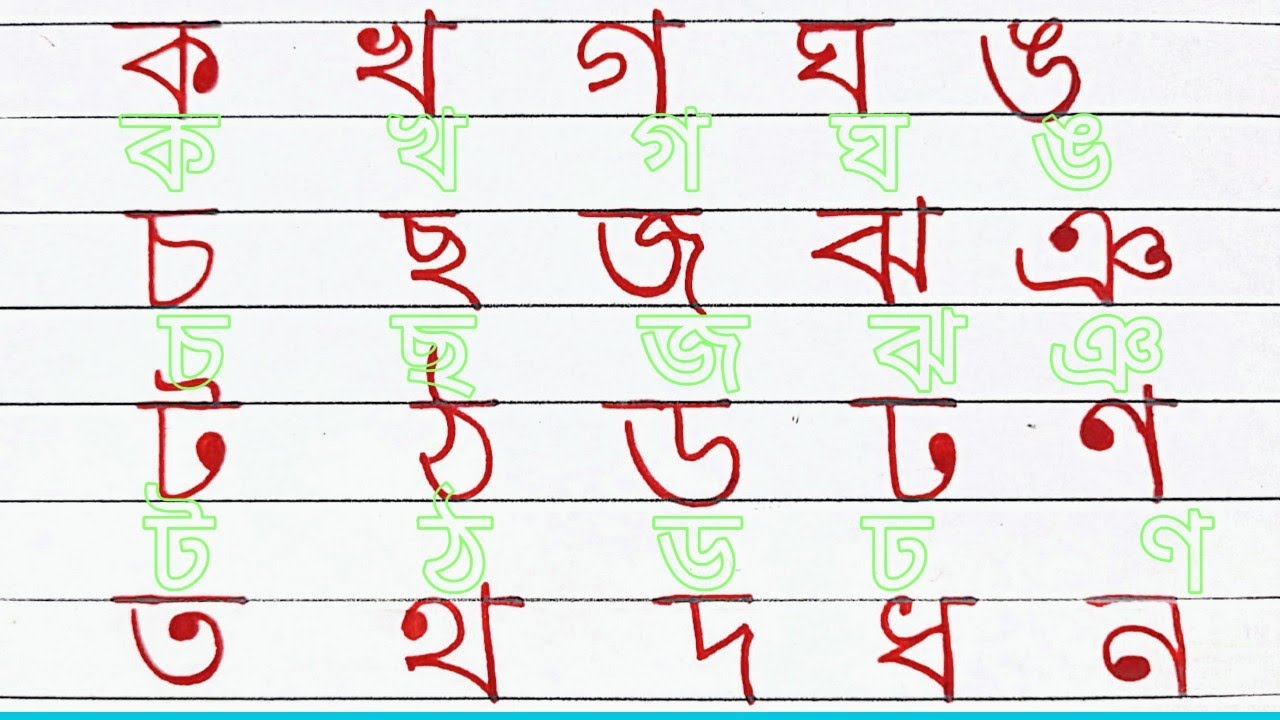 ক খ গ ঘ ঙ
ক খ গ ঘ ঙ
চ ছ জ ঝ ঞ
চ ছ জ ঝ ঞ
ট ঠ ড ঢ ণ
ট ঠ ড ঢ ণ
ত থ দ ধ ন